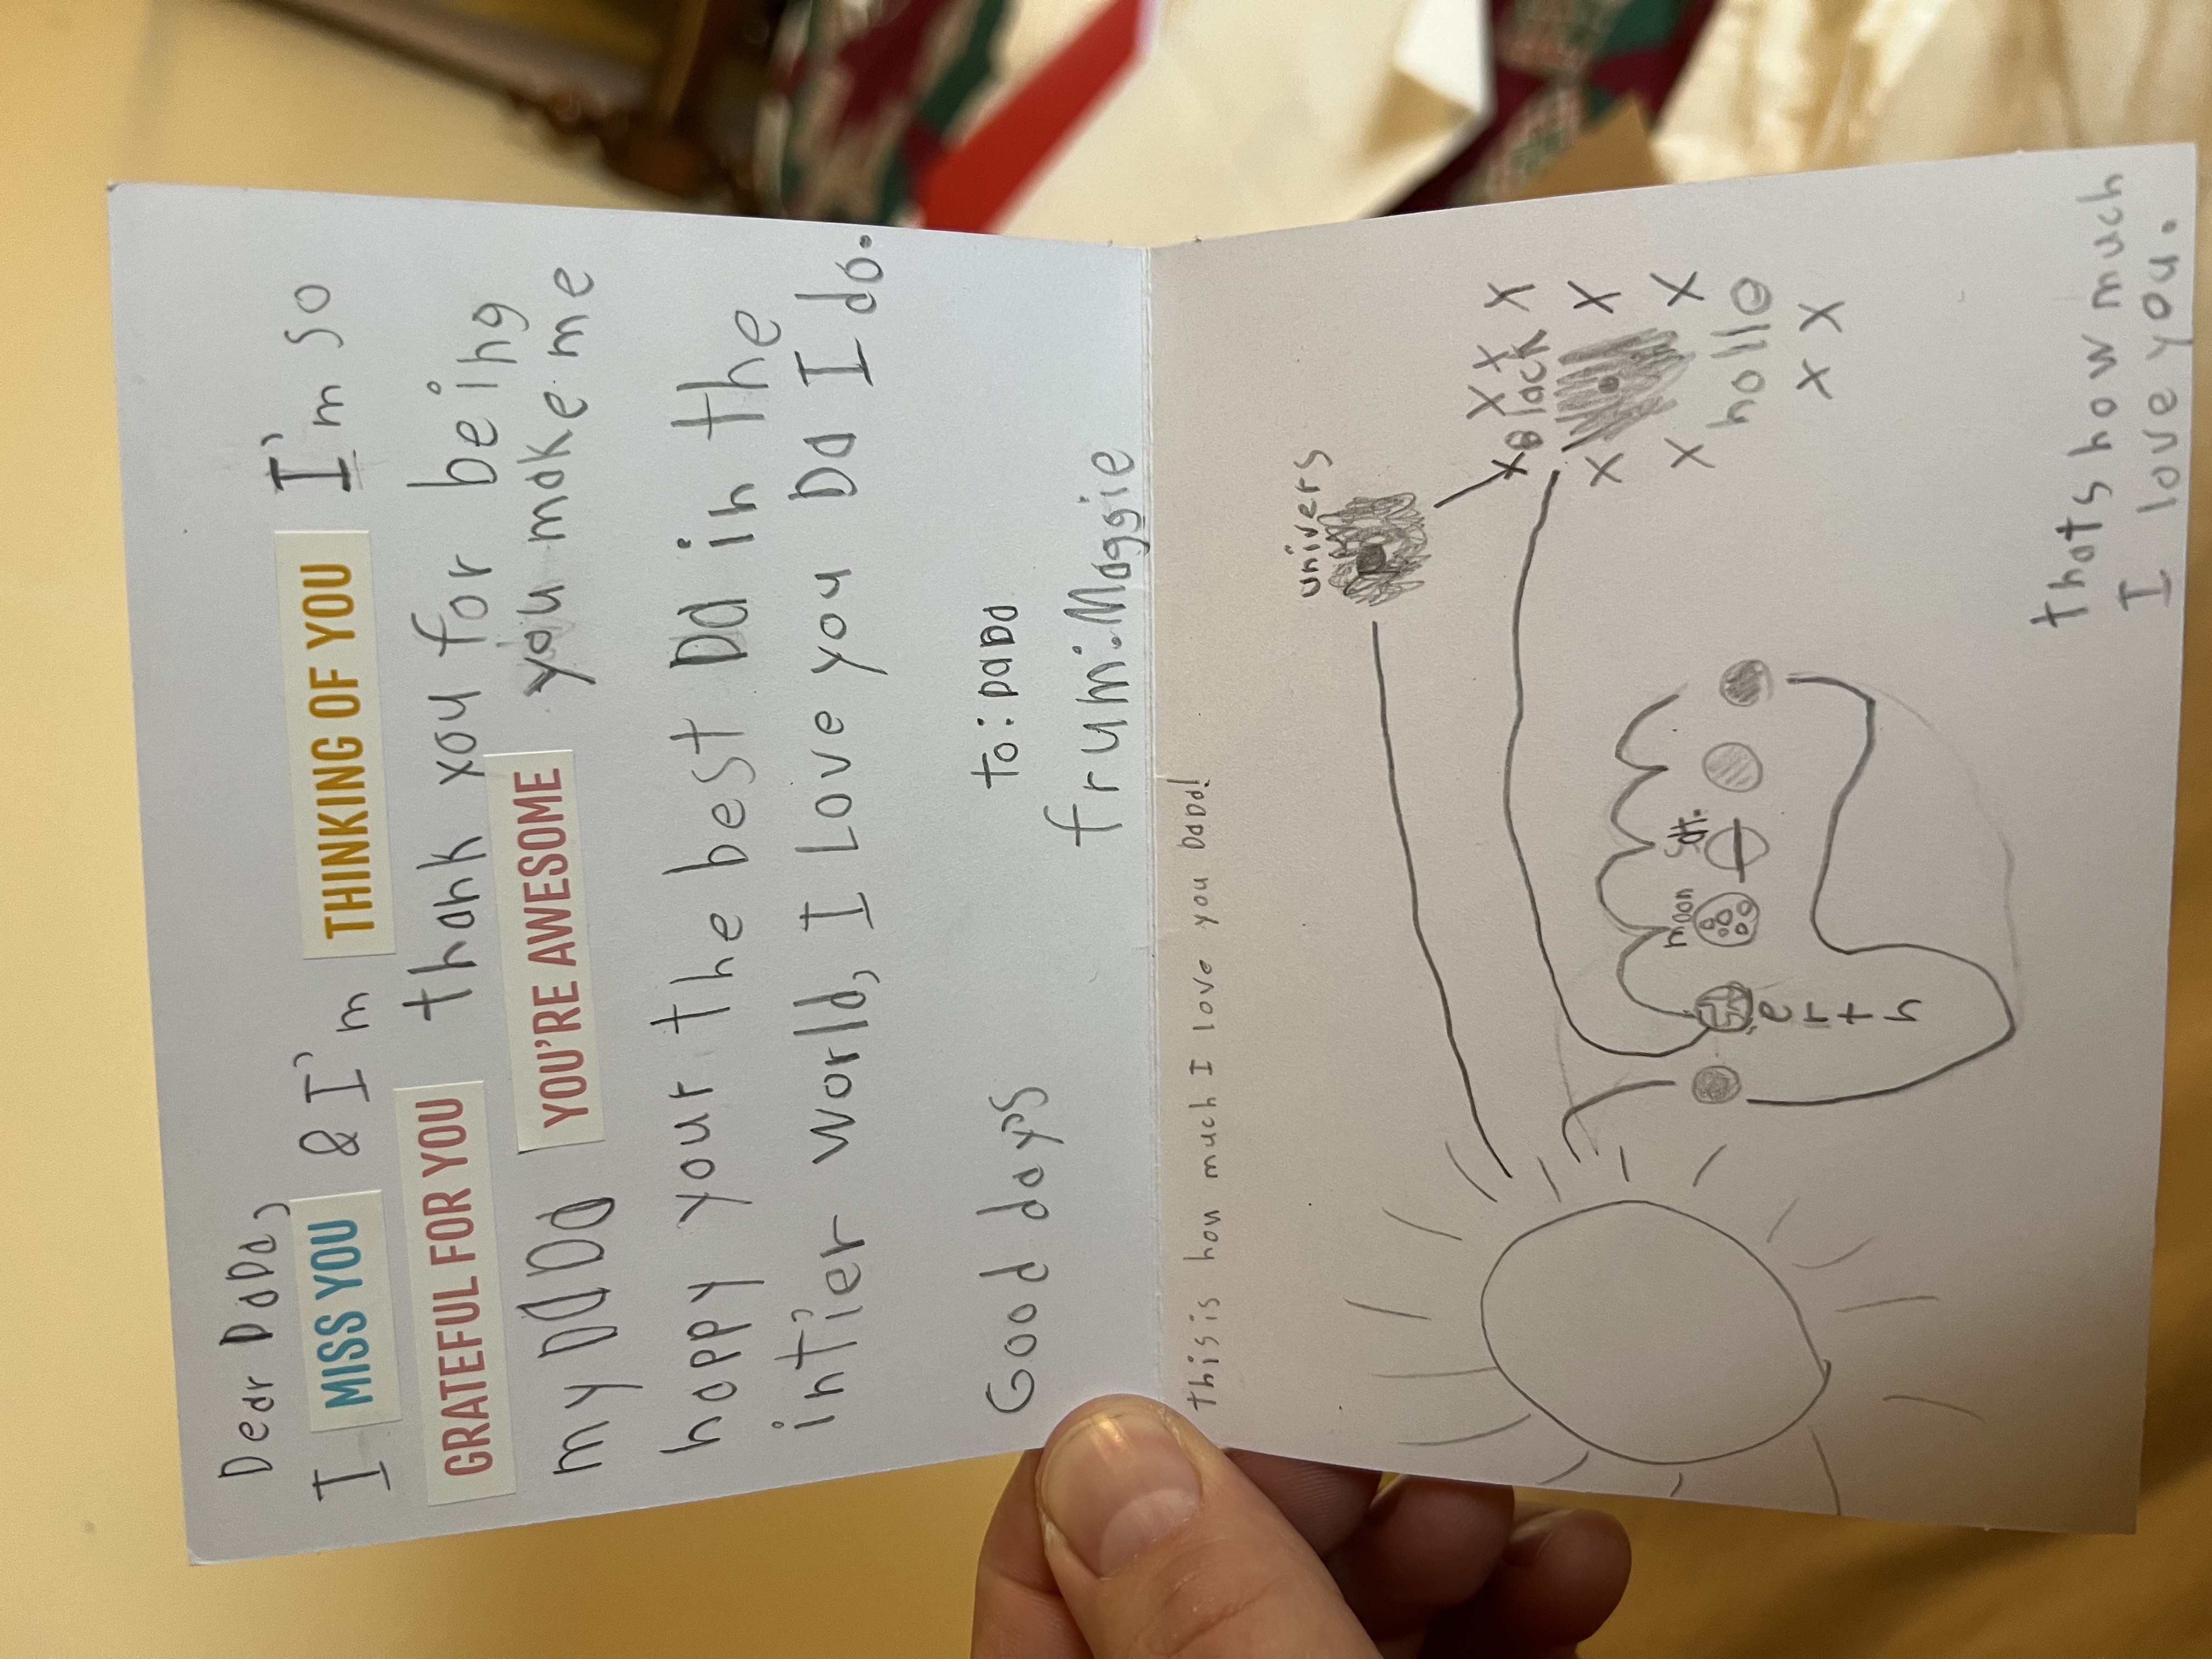 Dear DaDa,
I MISS YOU & I'm THINKING OF YOU I'm so
GRATEFUL FOR YOU thank you for being
my DaDa YOU'RE AWESOME you make me
happy your the best Da in the
in'tier world, I Love you Da I do.
Good days
to: DaDa
frum: Maggie
this is how much I love you DaDa!
univers
black
hollo
moon
sat.
erth
thats how much
I love you.